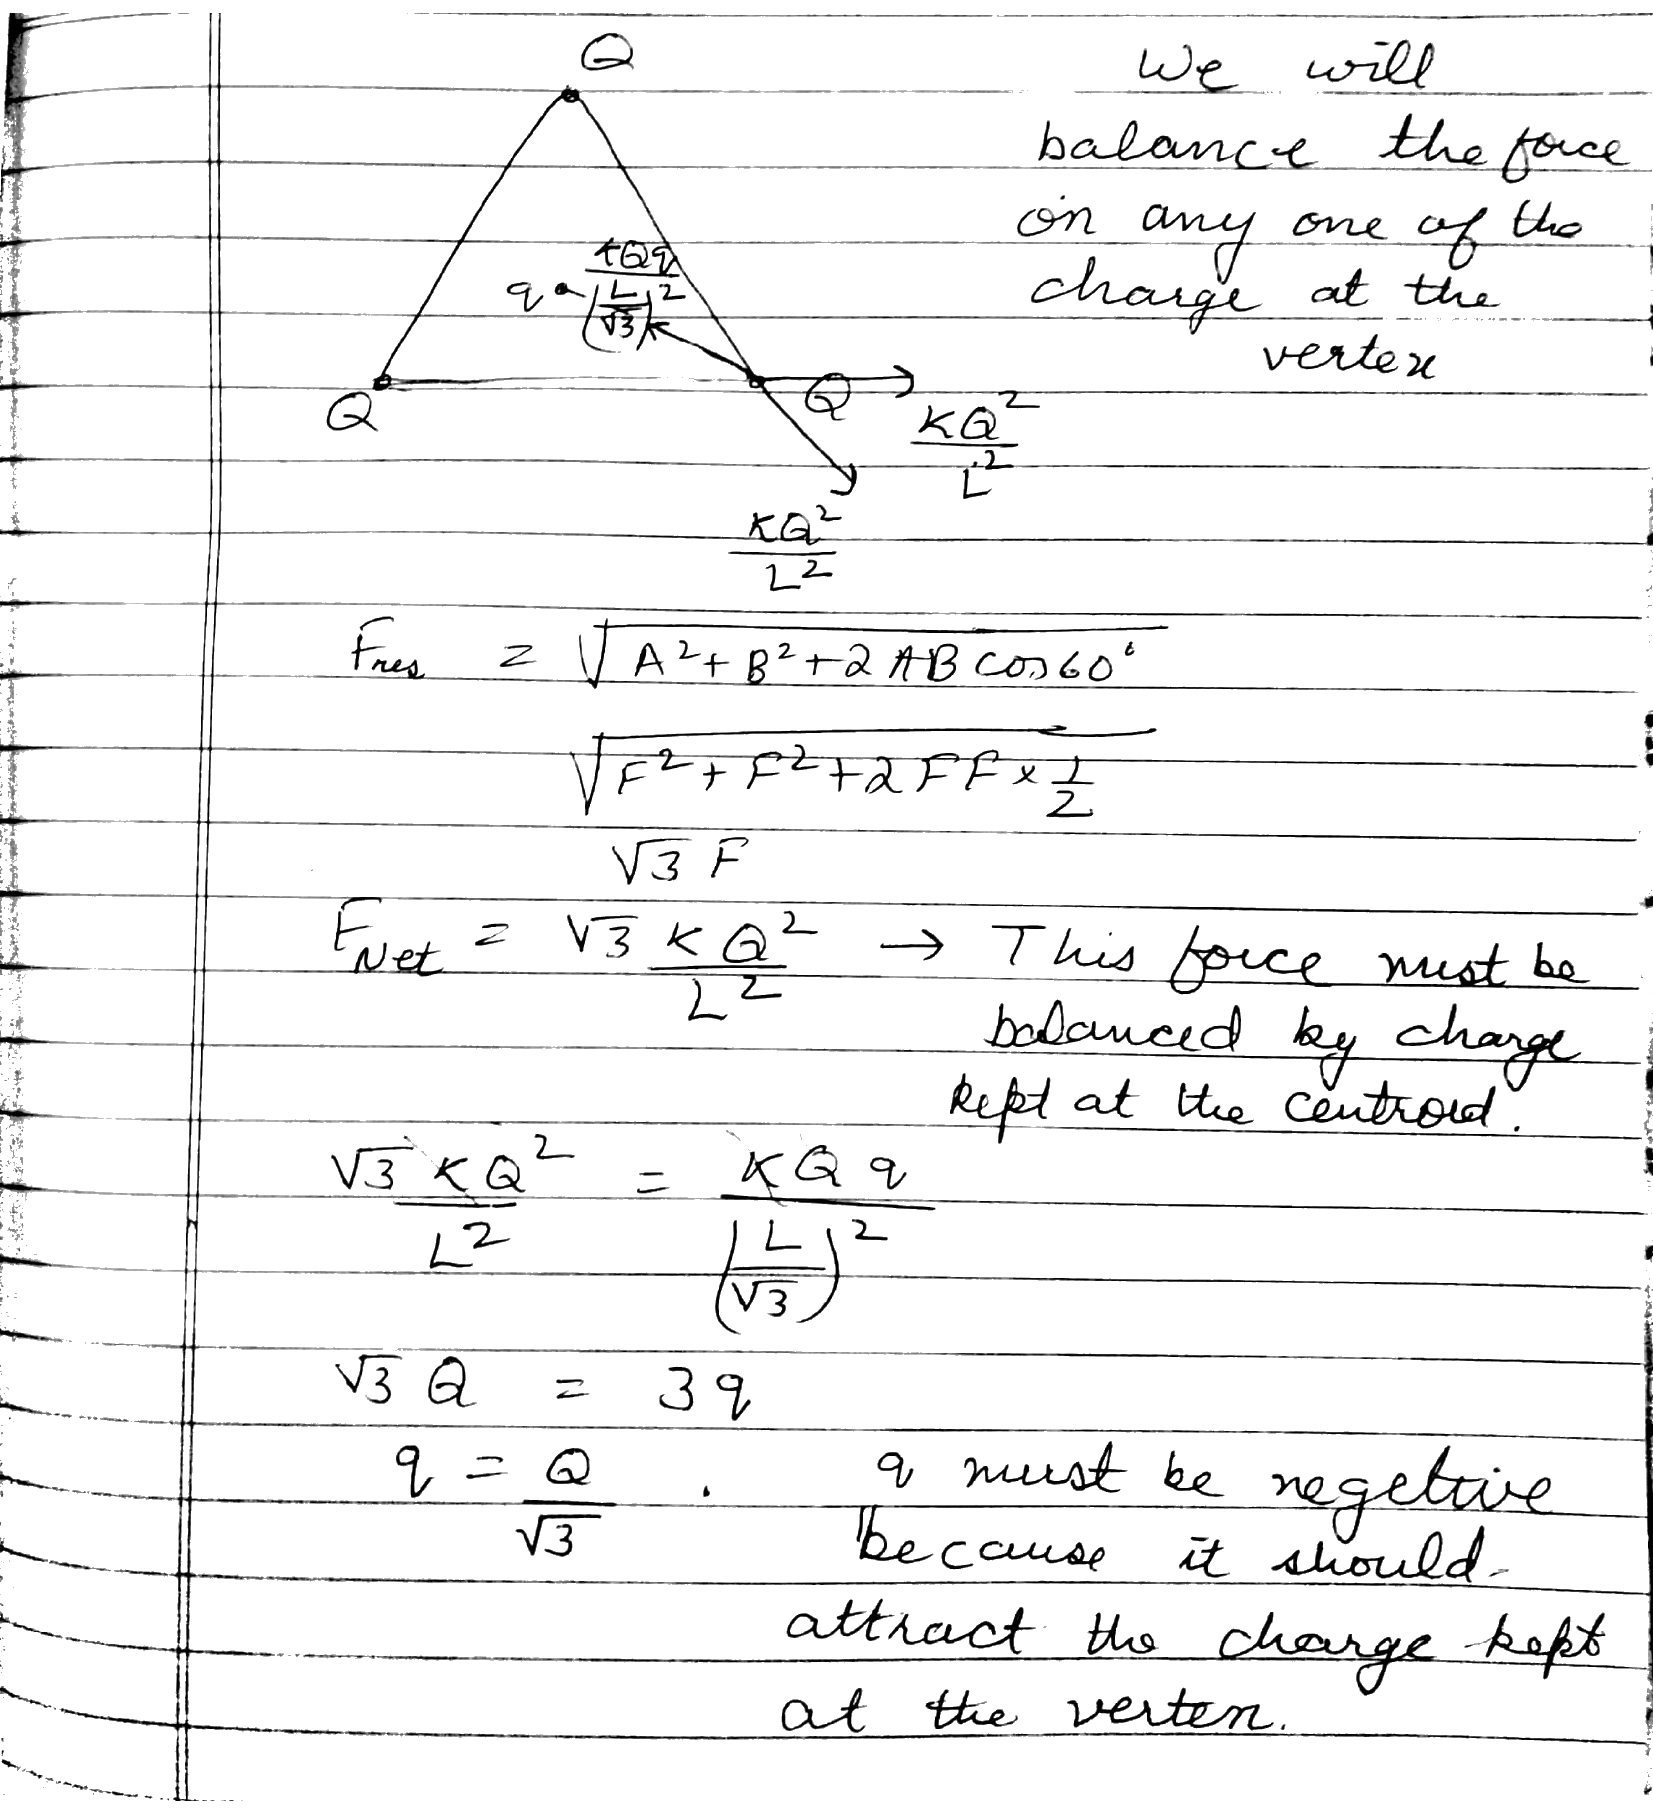 Q
We will
balance the force
on any one of the
charge at the
vertex
q
KQq
(L/√3)^2
Q
Q
KQ^2/L^2
KQ^2/L^2
Fres = √(A^2 + B^2 + 2 AB cos 60°)
√(F^2 + F^2 + 2 F F × 1/2)
√3 F
FNet = √3 K Q^2/L^2 → This force must be
balanced by charge
kept at the centroid.
√3 K Q^2/L^2 = K Q q/(L/√3)^2
√3 Q = 3q
q = Q/√3 . q must be negetive
because it should
attract the charge kept
at the vertex.